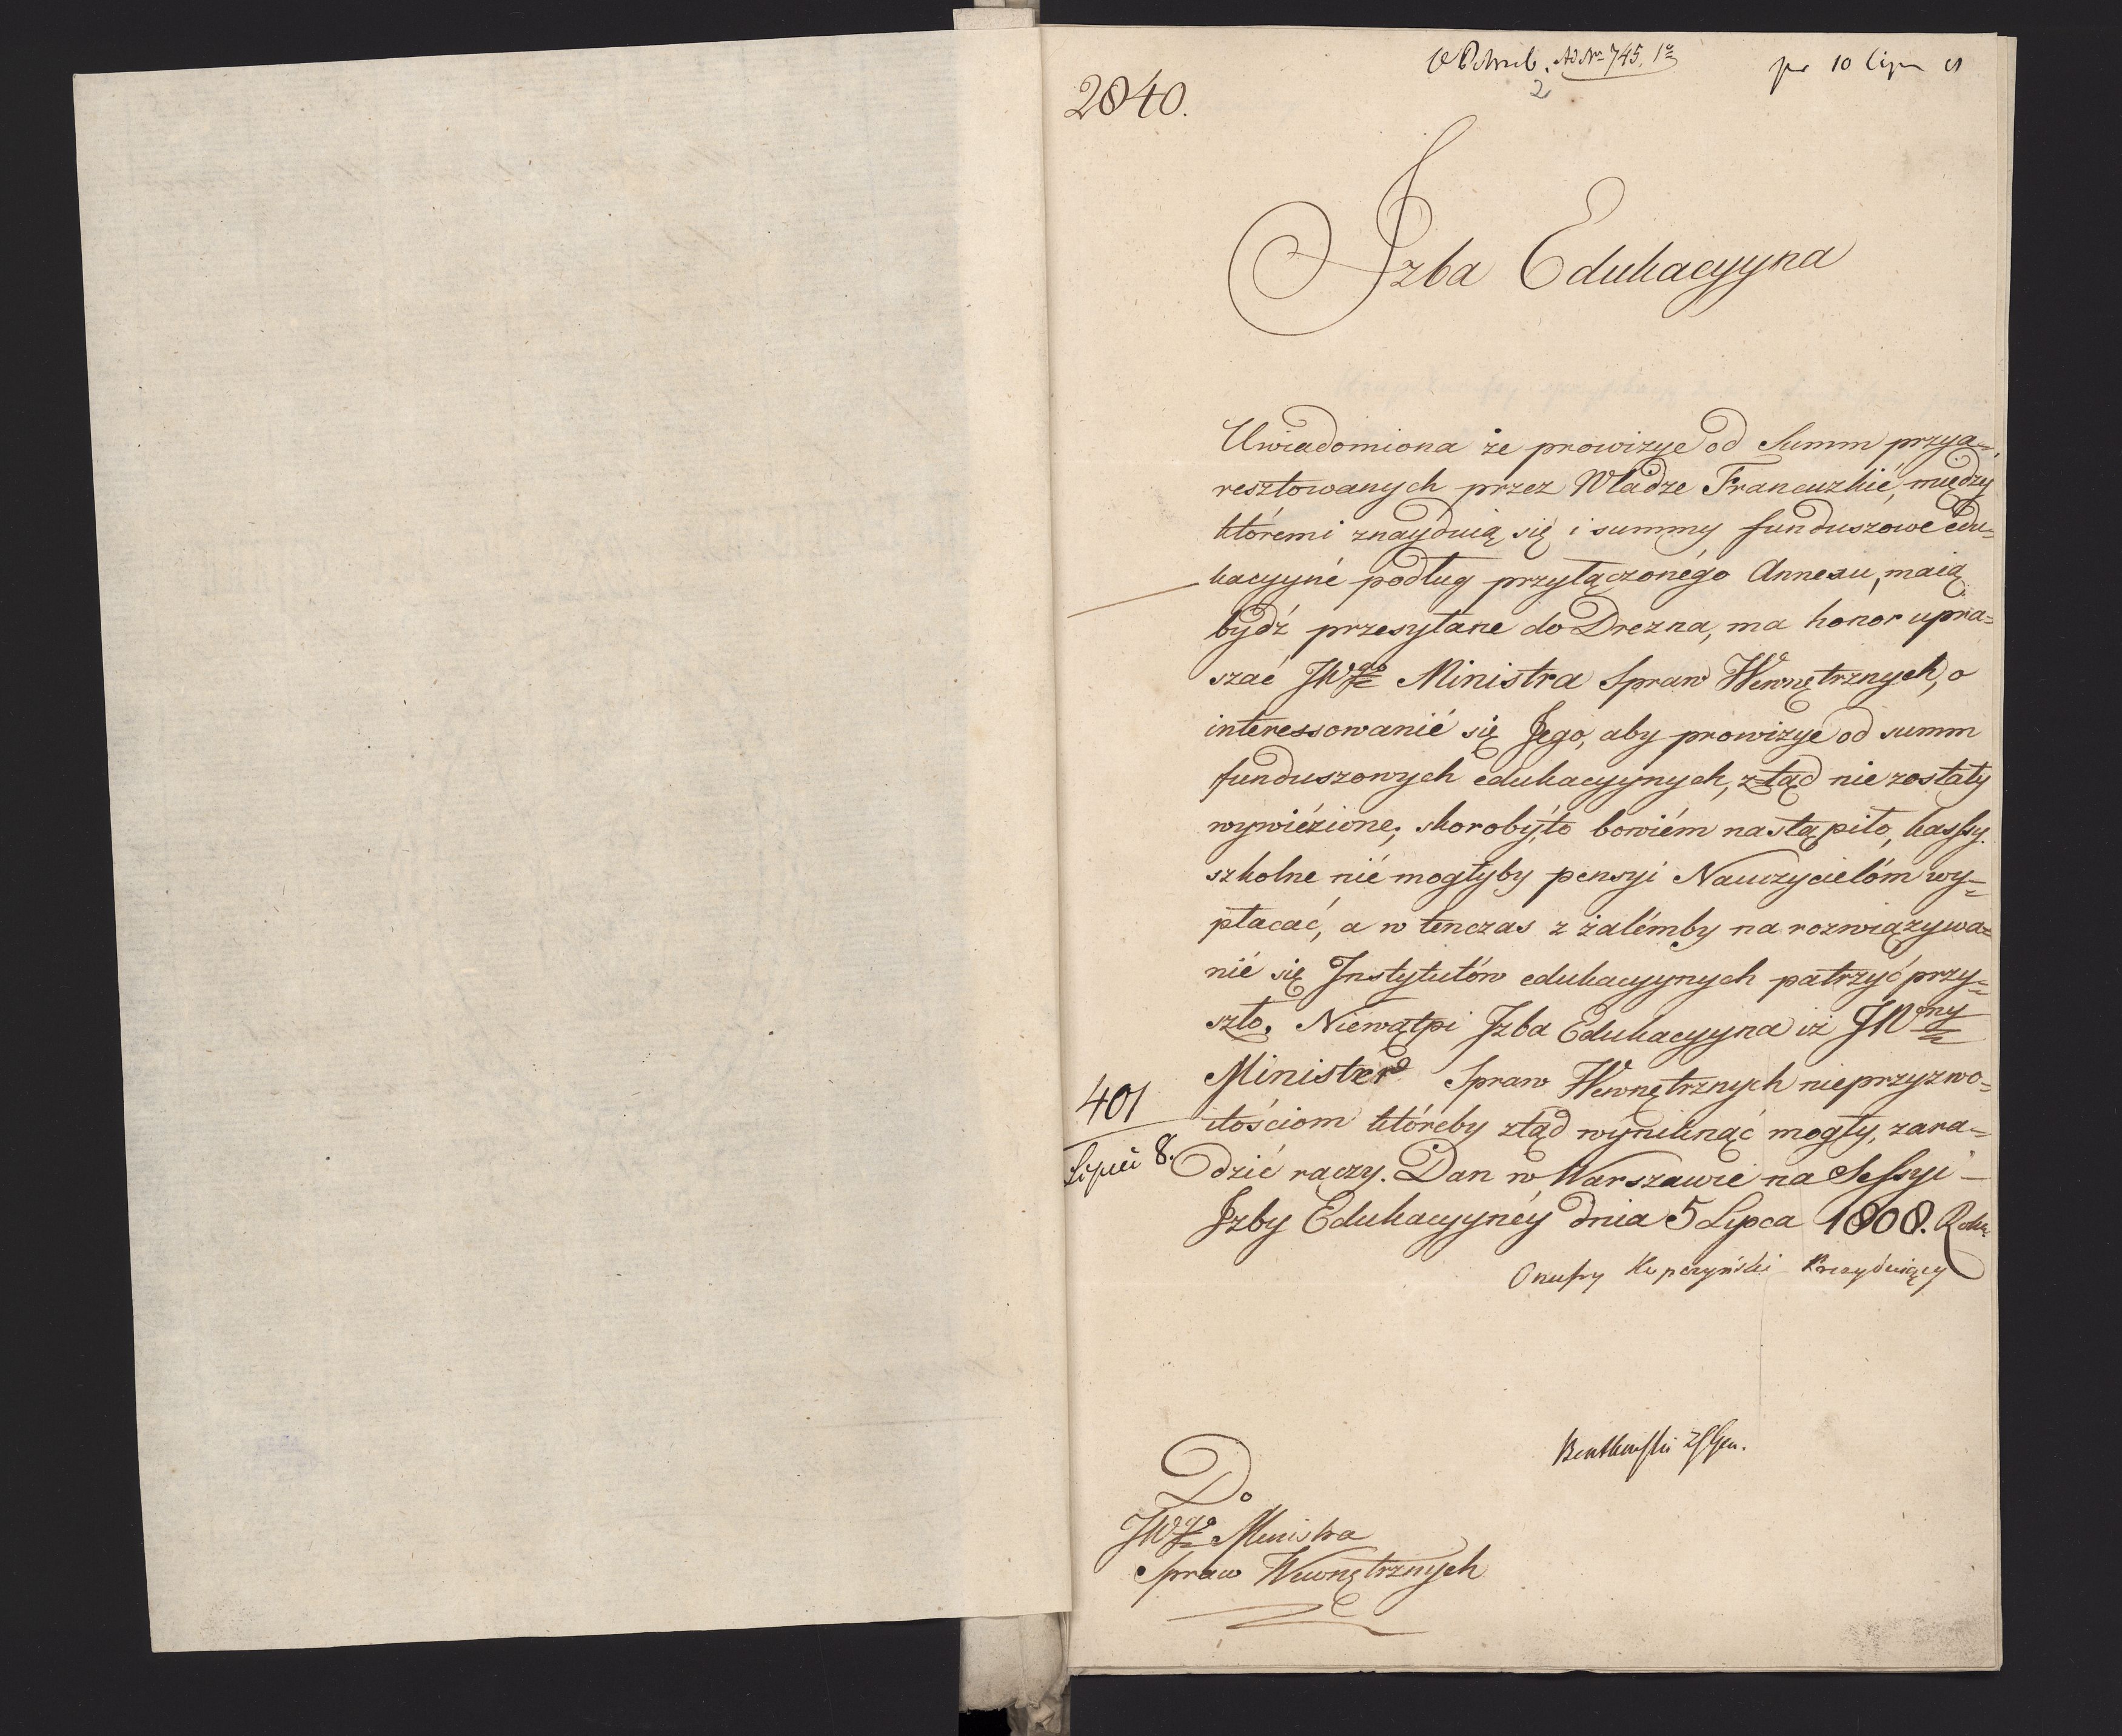 Ad Nr 745. 1o
pr 10 lipca
2
2840.
Izba Edukacyyna
Uwiadomiona że prowizye od Summ przya=
resztowanych przez Władze Francuzkié, między
któremi znayduią się i summy funduszowe edu=
kacyyné podług przyłączonégo Annexu, maią
bydź przesyłane do Drezna, ma honor upra=
szać JWgo Ministra Spraw Wewnętrznych, o
interessowanié się Jego, aby prowizye od summ
funduszowych edukacyynych, ztąd nie zostały
wywiézione; skoroby to bowiém nastąpiło, kassy
szkolne nié mogłyby pensyi Nauczycielóm wy=
płacać, a w tenczas z żalémby na rozwiązywa=
nié się Instytutów edukacyynych patrzyć przy=
szło. Niéwątpi Izba Edukacyyna iż JWny
Minister Spraw Wewnętrznych nieprzyzwo=
itościom któreby ztąd wyniknąć mogły, zara=
dzić raczy. Dan w Warszawie na Sessyi
Izby Edukacyynéy dnia 5 Lipca 1808. Roku
401
Lipca 8.
Onufry Kopczyński Prezyduiący
Bentkowski ZSGen.
Do
JWgo Ministra
Spraw Wewnętrznych